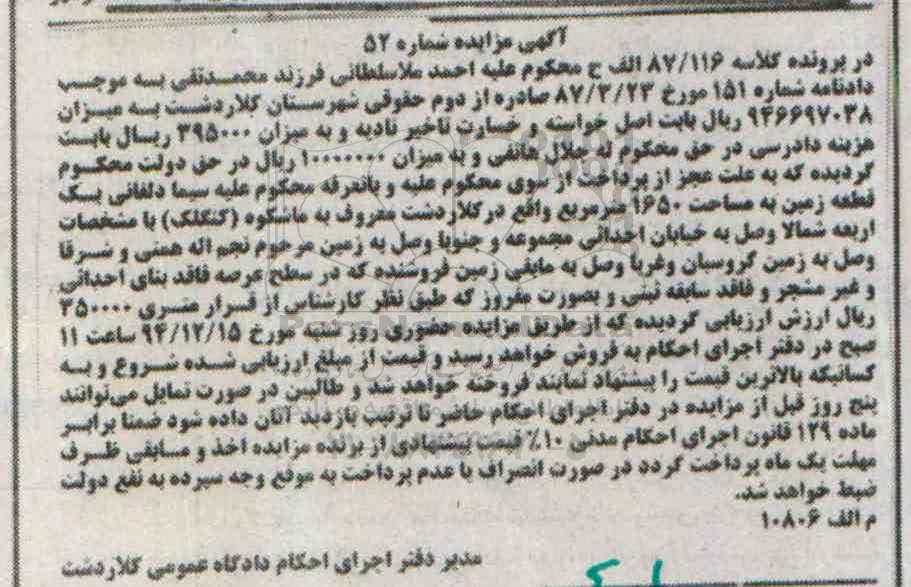 آگهی مزایده شماره ۵۲
در پرونده کلاسه ۸۷/۱۱۶ الف ح محکوم علیه احمد ملاسلطانی فرزند محمدتقی به موجب
دادنامه شماره ۱۵۱ مورخ ۸۷/۳/۲۳ صادره از دوم حقوقی شهرستان کلاردشت به میزان
۹۴۶۶۹۷۰۳۸ ریال بابت اصل خواسته و خسارت تاخیر تادیه و به میزان ۳۹۵۰۰۰ ریال بابت
هزینه دادرسی در حق محکوم له جلال هاتفی و به میزان ۱۰۰۰۰۰۰۰ ریال در حق دولت محکوم
گردیده که به علت عجز از پرداخت از سوی محکوم علیه و بالعرفه محکوم علیه سیما دلفانی یک
قطعه زمین به مساحت ۱۶۵۰ مترمربع واقع در کلاردشت معروف به ماشکوه (کنگلک) با مشخصات
اربعه شمالا وصل به خیابان احداثی مجموعه و جنوبا وصل به زمین مرحوم نجم اله همتی و شرقا
وصل به زمین گروسیان وغربا وصل به مابقی زمین فروشنده که در سطح عرصه فاقد بنای احداثی
و غیر مشجر و فاقد سابقه ثبتی و بصورت مفروز که طبق نظر کارشناس از قرار متری ۳۵۰۰۰۰
ریال ارزش ارزیابی گردیده که از طریق مزایده حضوری روز شنبه مورخ ۹۴/۱۲/۱۵ ساعت ۱۱
صبح در دفتر اجرای احکام به فروش خواهد رسید و قیمت از مبلغ ارزیابی شده شروع و به
کسانیکه بالاترین قیمت را پیشنهاد نمایند فروخته خواهد شد و طالبین در صورت تمایل می‌توانند
پنج روز قبل از مزایده در دفتر اجرای احکام حاضر تا ترتیب بازدید آنان داده شود ضمنا برابر
ماده ۱۲۹ قانون اجرای احکام مدنی ۱۰٪ قیمت پیشنهادی از برنده مزایده اخذ و مابقی ظرف
مهلت یک ماه پرداخت گردد در صورت انصراف یا عدم پرداخت به موقع وجه سپرده به نفع دولت
ضبط خواهد شد.
م الف ۱۰۸۰۶
مدیر دفتر اجرای احکام دادگاه عمومی کلاردشت